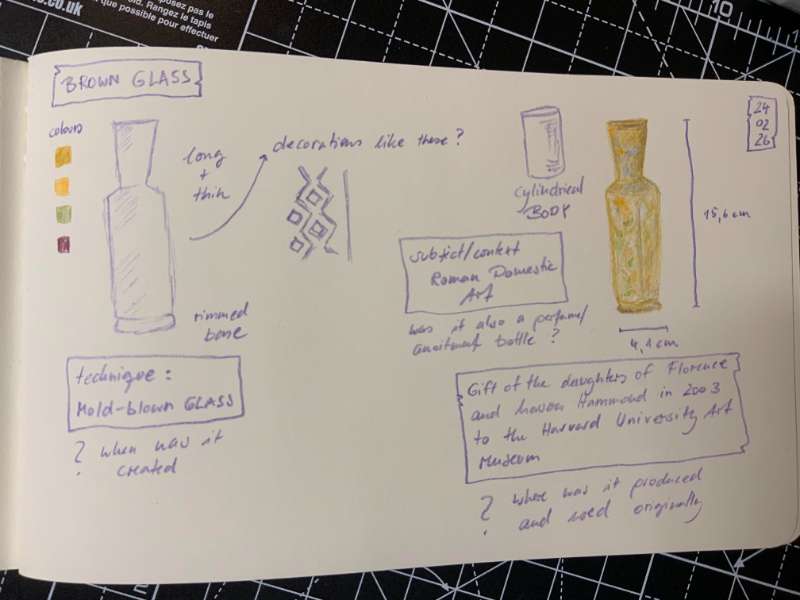 co.uk
posez pas le
ld. Rangez le tapis
que possible pour effectuer
10
BROWN GLASS
24
02
26
colours
long
+
thin
decorations like these?
cylindrical
BODY
15,6 cm
4,1 cm
rimmed
base
subject/context
Roman Domestic
Art
was it also a perfume/
bottle?
technique:
Mold-blown GLASS
? when was it
created
Gift of the daughters of Florence
and Mason Hammond in 2003
to the Harvard University Art
Museum
? where was it produced
and used originally